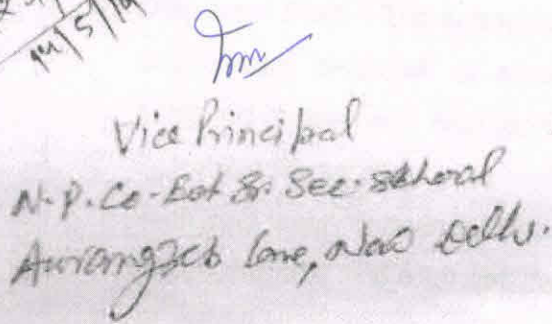 14/5/19
Vice Principal
N.P. Co-Ed Sr. Sec. School
Aurangzeb Lane, New Delhi.